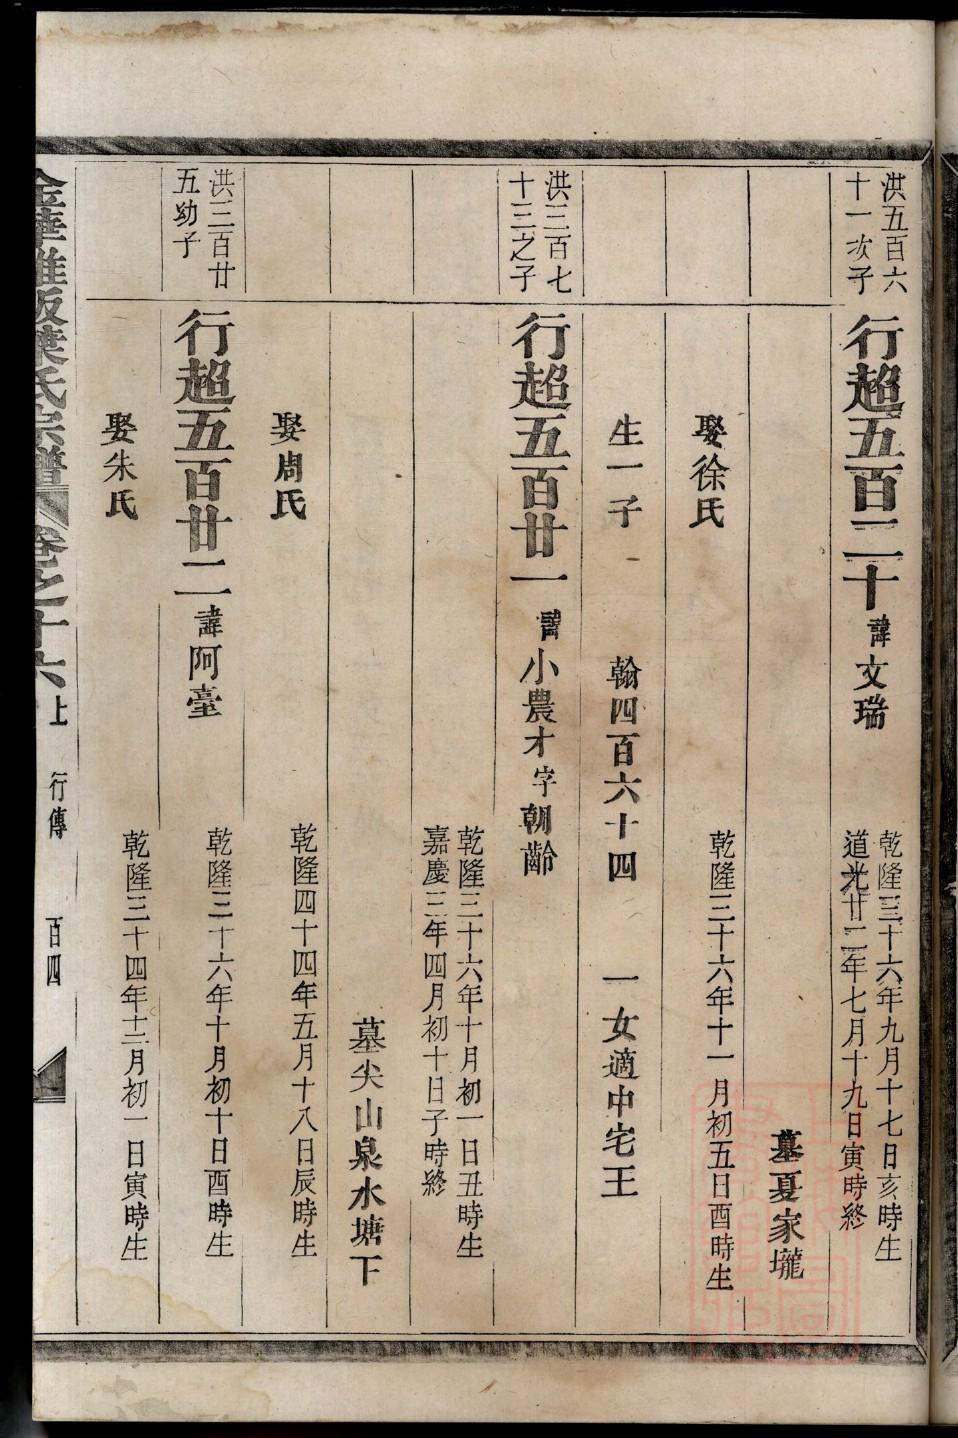 洪五百六
十一次子
行超五百二十 諱文瑞
乾隆三十六年九月十七日亥時生
道光廿二年七月十九日寅時終
墓夏家壠
娶徐氏
乾隆三十六年十一月初五日酉時生
生一子 翰四百六十四 一女適中宅王
洪三百七
十三之子
行超五百廿一 諱小農才字朝齡
乾隆三十六年十月初一日丑時生
嘉慶三年四月初十日子時終
墓尖山泉水塘下
娶周氏
乾隆四十四年五月十八日辰時生
洪三百廿
五幼子
行超五百廿二 諱阿臺
乾隆三十六年十月初十日酉時生
娶朱氏
乾隆三十四年十二月初一日寅時生
金華雅畈葉氏宗譜 卷之十六上 行傳 百四